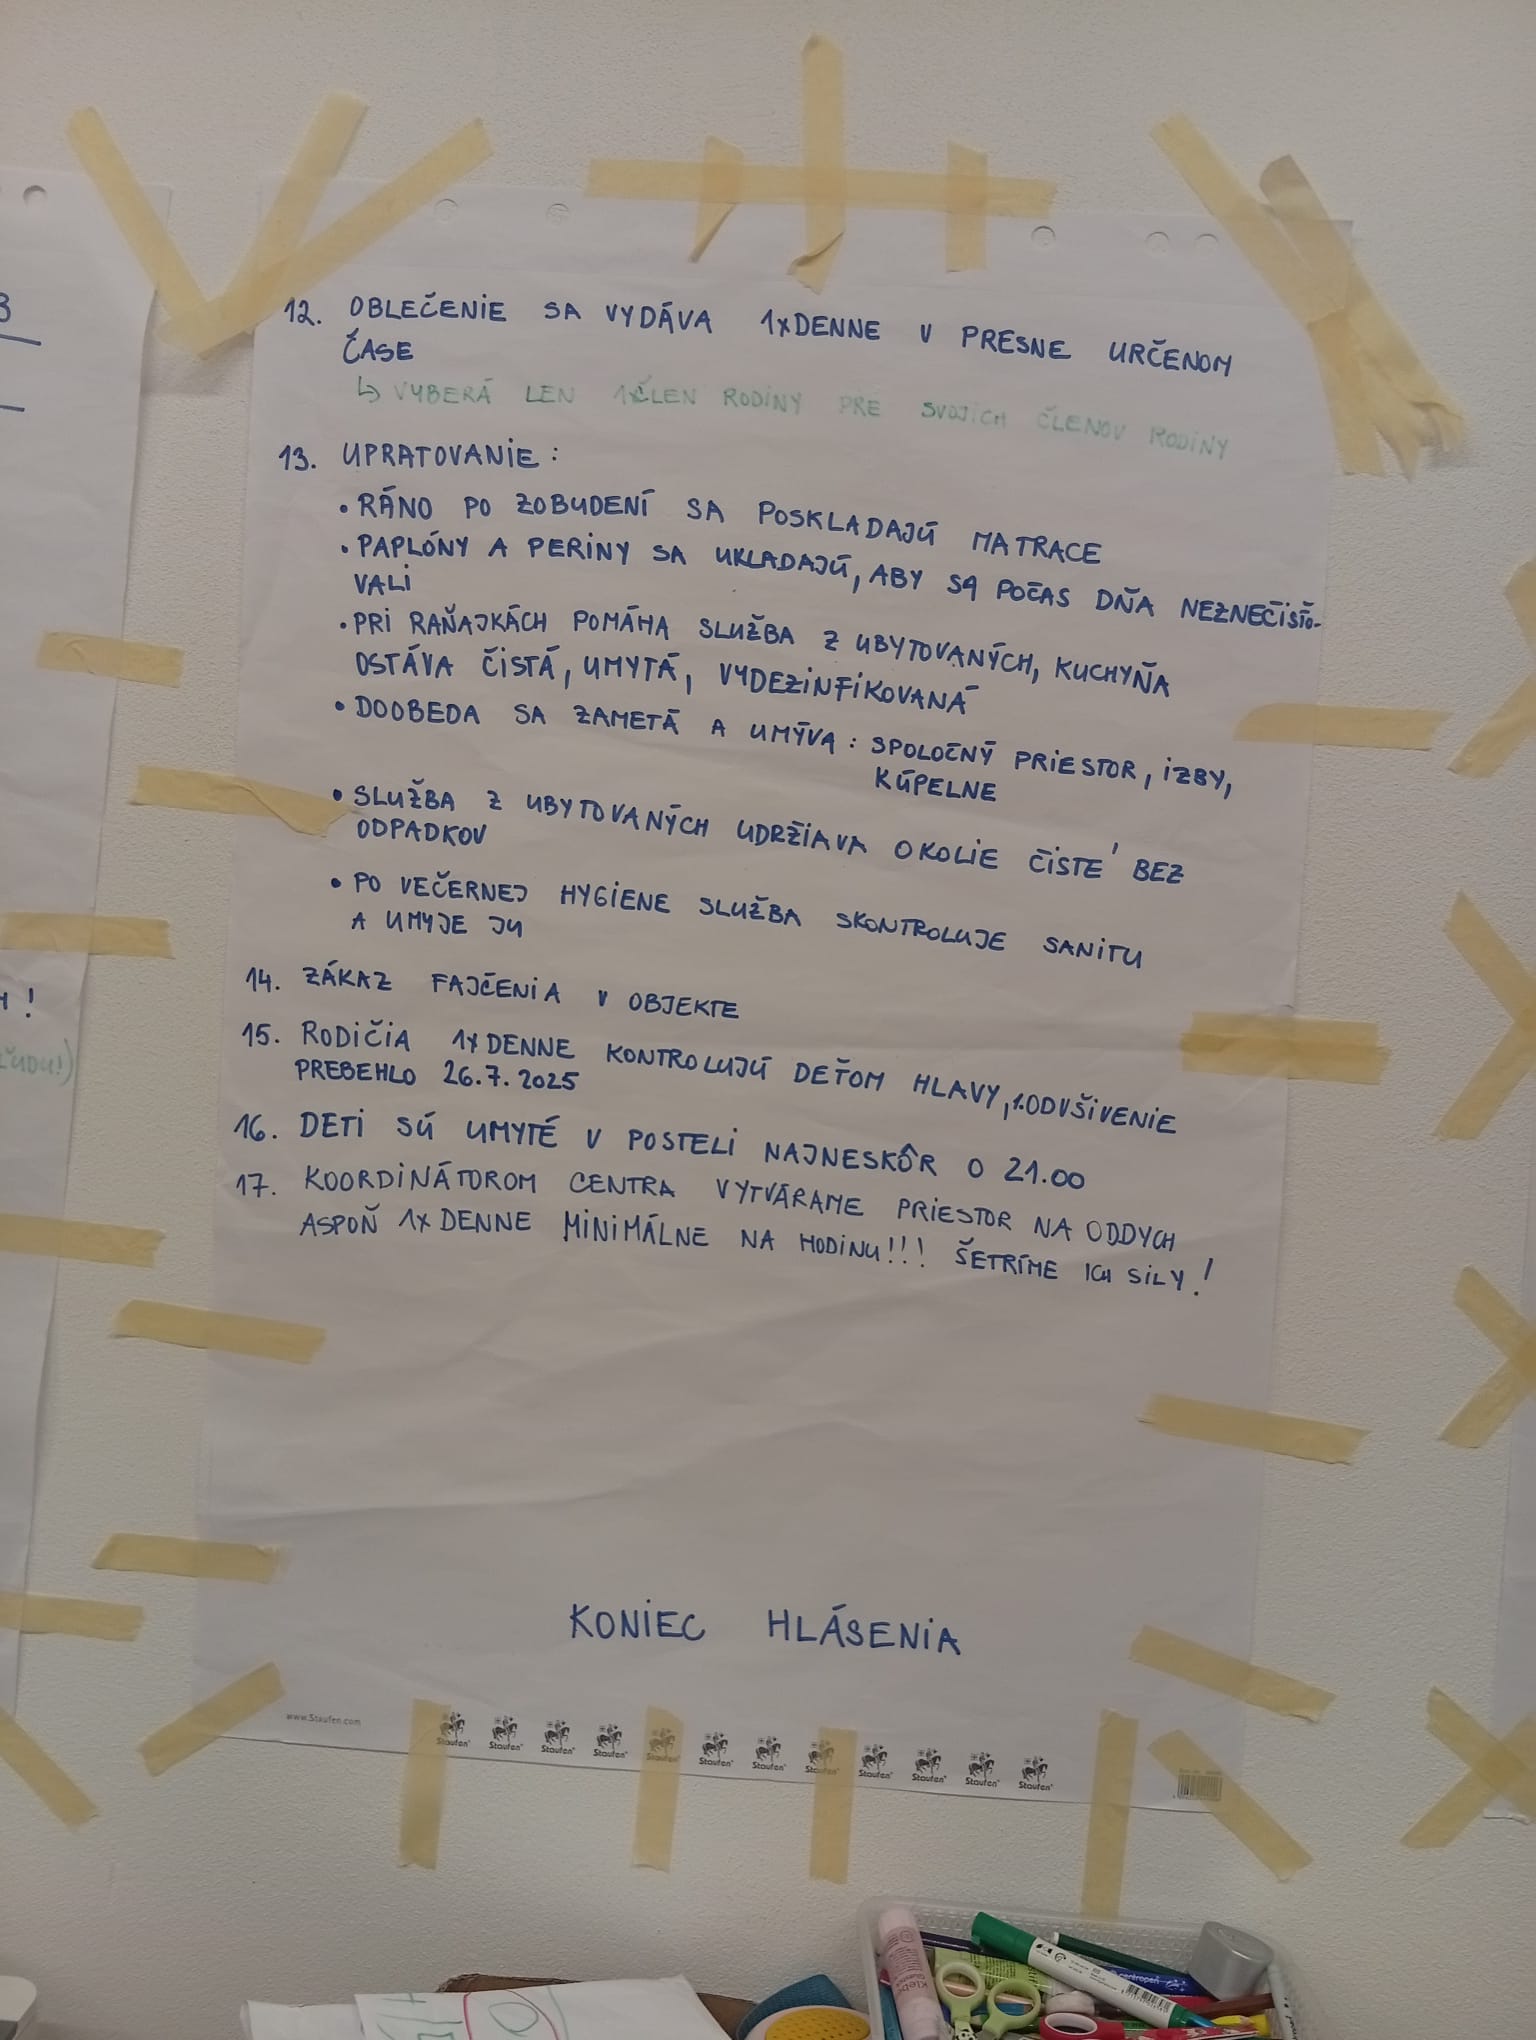 12. OBLEČENIE SA VYDÁVA 1xDENNE V PRESNE URČENOM
ČASE
↳ VYBERÁ LEN 1xČLEN RODINY PRE SVOJICH ČLENOV RODINY
13. UPRATOVANIE:
• RÁNO PO ZOBUDENÍ SA POSKLADAJÚ MATRACE
• PAPLÓNY A PERINY SA UKLADAJÚ, ABY SA POČAS DŇA NEZNEČISŤO-
VALI
• PRI RAŇAJKÁCH POMÁHA SLUŽBA Z UBYTOVANÝCH, KUCHYŇA
OSTÁVA ČISTÁ, UMYTÁ, VYDEZINFIKOVANÁ
• DOOBEDA SA ZAMETÁ A UMÝVA: SPOLOČNÝ PRIESTOR, IZBY,
KÚPELNE
• SLUŽBA Z UBYTOVANÝCH UDRŽIAVA OKOLIE ČISTÉ BEZ
ODPADKOV
• PO VEČERNEJ HYGIENE SLUŽBA SKONTROLUJE SANITU
A UMYJE JU
14. ZÁKAZ FAJČENIA V OBJEKTE
15. RODIČIA 1xDENNE KONTROLUJÚ DEŤOM HLAVY, 1.ODVŠIVENIE
PREBEHLO 26.7.2025
16. DETI SÚ UMYTÉ V POSTELI NAJNESKÔR O 21.00
17. KOORDINÁTOROM CENTRA VYTVÁRAME PRIESTOR NA ODDYCH
ASPOŇ 1x DENNE MINIMÁLNE NA HODINU!!! ŠETRÍME ICH SILY!
KONIEC HLÁSENIA
www.Staufen.com
Staufen Staufen Staufen Staufen Staufen Staufen Staufen Staufen Staufen Staufen Staufen Staufen